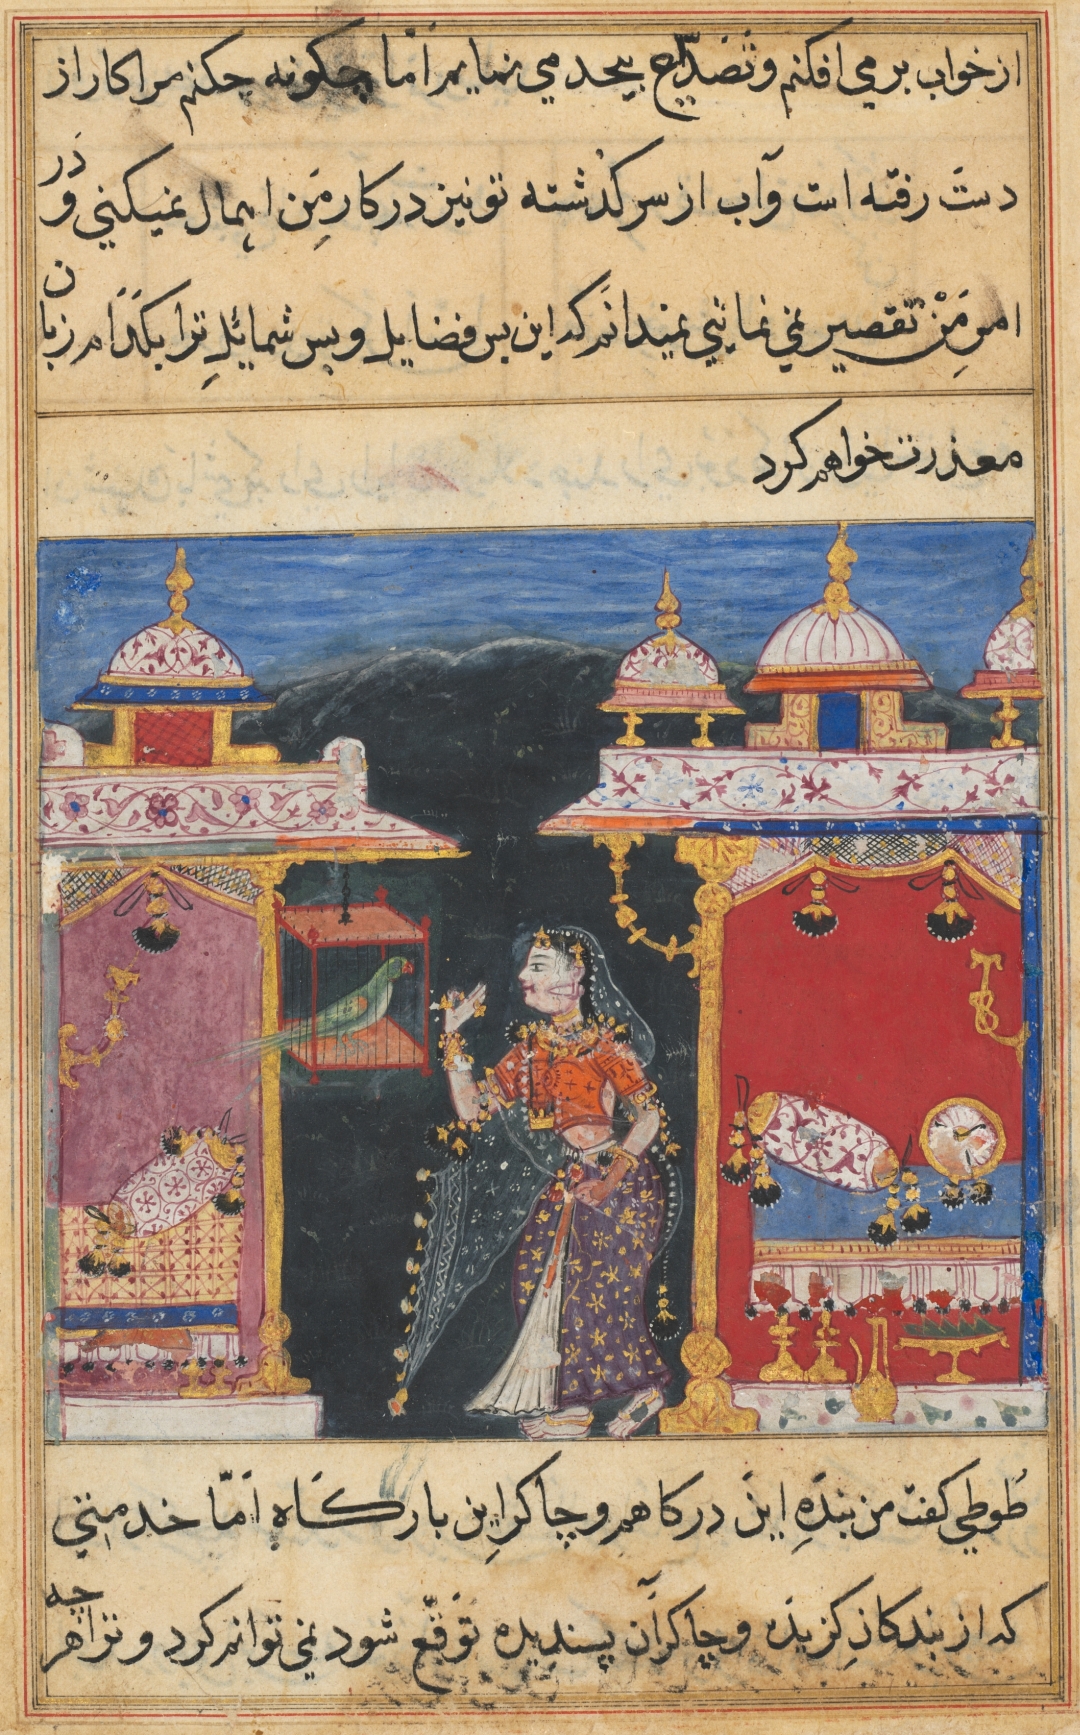 از خواب بر می افکنم و تصدیع بیحد می نمایم اما چکونه چکنم مرا کار از
دست رفته است و آب از سر کذشته تو نیز در کار من اهمال نمیکنی و در
امر من تقصیر نمی نمائی نمیدانم که این بس فضایل و بس شمائل ترا بکدام زبان
معذرت خواهم کرد
طوطی کفت من بنده این درکاهم و چاکر این بارکاه اما خدمتی
که از بندکان کزیده و چاکران پسندیده توقع شود نمی توانم کرد و ترا هر چه